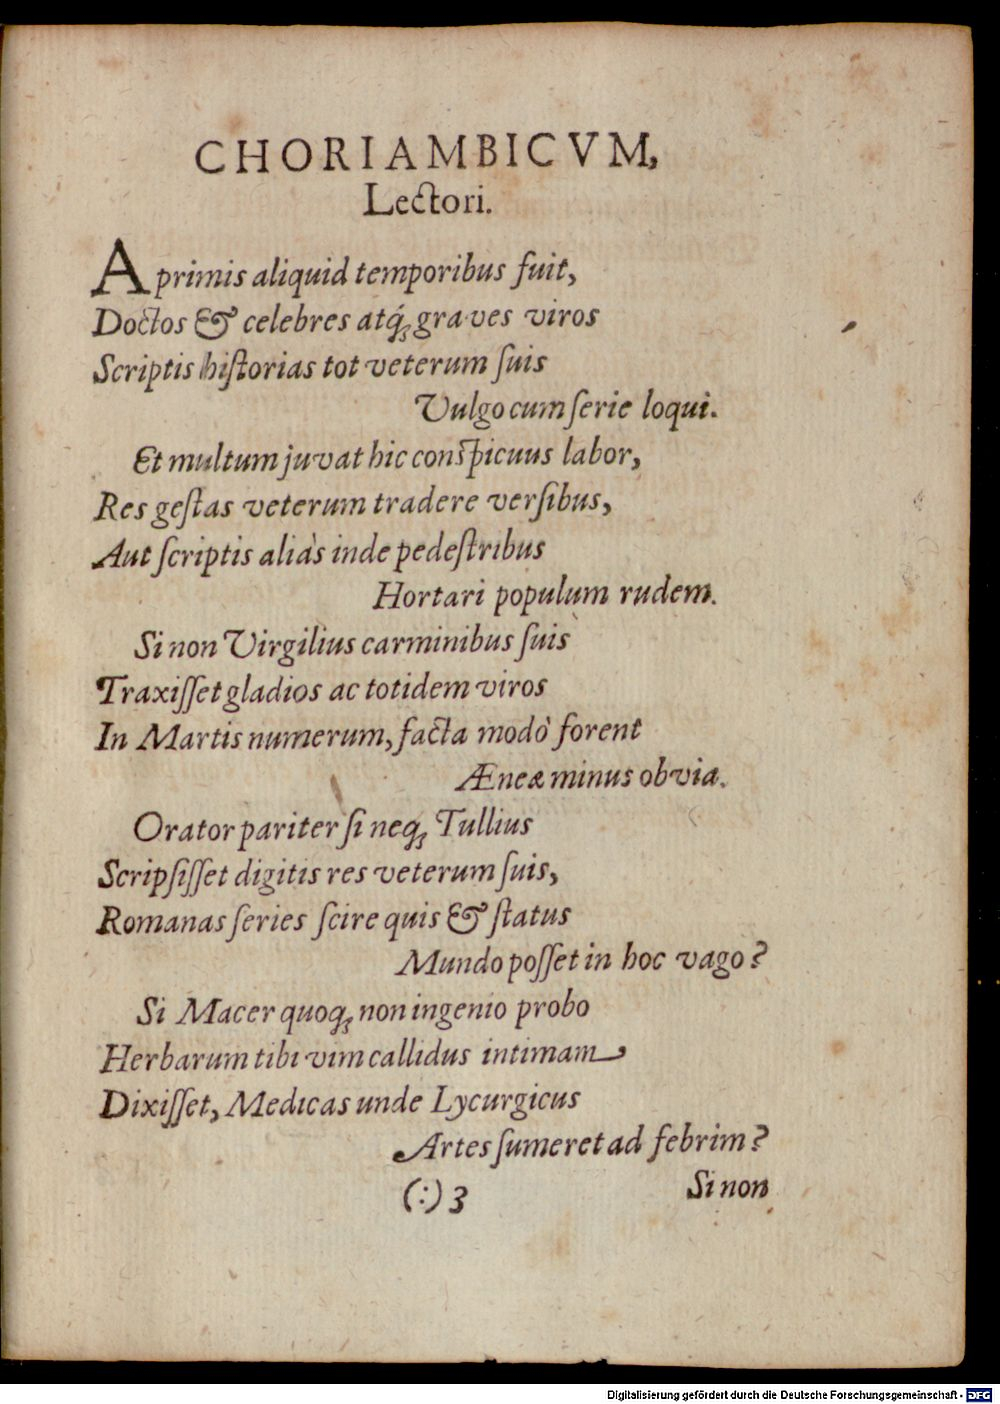 CHORIAMBICVM,
Lectori.
A primis aliquid temporibus fuit,
Doctos & celebres atq́ꝫ graves viros
Scriptis historias tot veterum suis
Vulgo cum serie loqui.
Et multum juvat hic conspicuus labor,
Res gestas veterum tradere versibus,
Aut scriptis aliàs inde pedestribus
Hortari populum rudem.
Si non Virgilius carminibus suis
Traxisset gladios ac totidem viros
In Martis numerum, facta modò forent
Æneæ minus obvia.
Orator pariter si neqꝫ Tullius
Scripsisset digitis res veterum suis,
Romanas series scire quis & status
Mundo posset in hoc vago?
Si Macer quoqꝫ non ingenio probo
Herbarum tibi vim callidus intimam
Dixisset, Medicas unde Lycurgicus
Artes sumeret ad febrim?
(:) 3 Si non
Digitalisierung gefördert durch die Deutsche Forschungsgemeinschaft - DFG